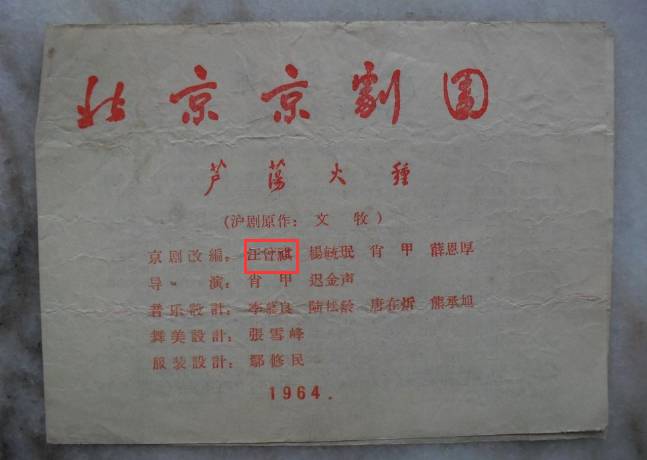 北京京劇团
芦蕩火種
(沪剧原作: 文 牧)
京剧改編: 汪曾祺 楊毓珉 肖 甲 薛恩厚
导 演: 肖 甲 迟金声
音乐設計: 李慕良 陆松龄 唐在炘 熊承旭
舞美設計: 張雪峰
服装設計: 鄢修民
1964.